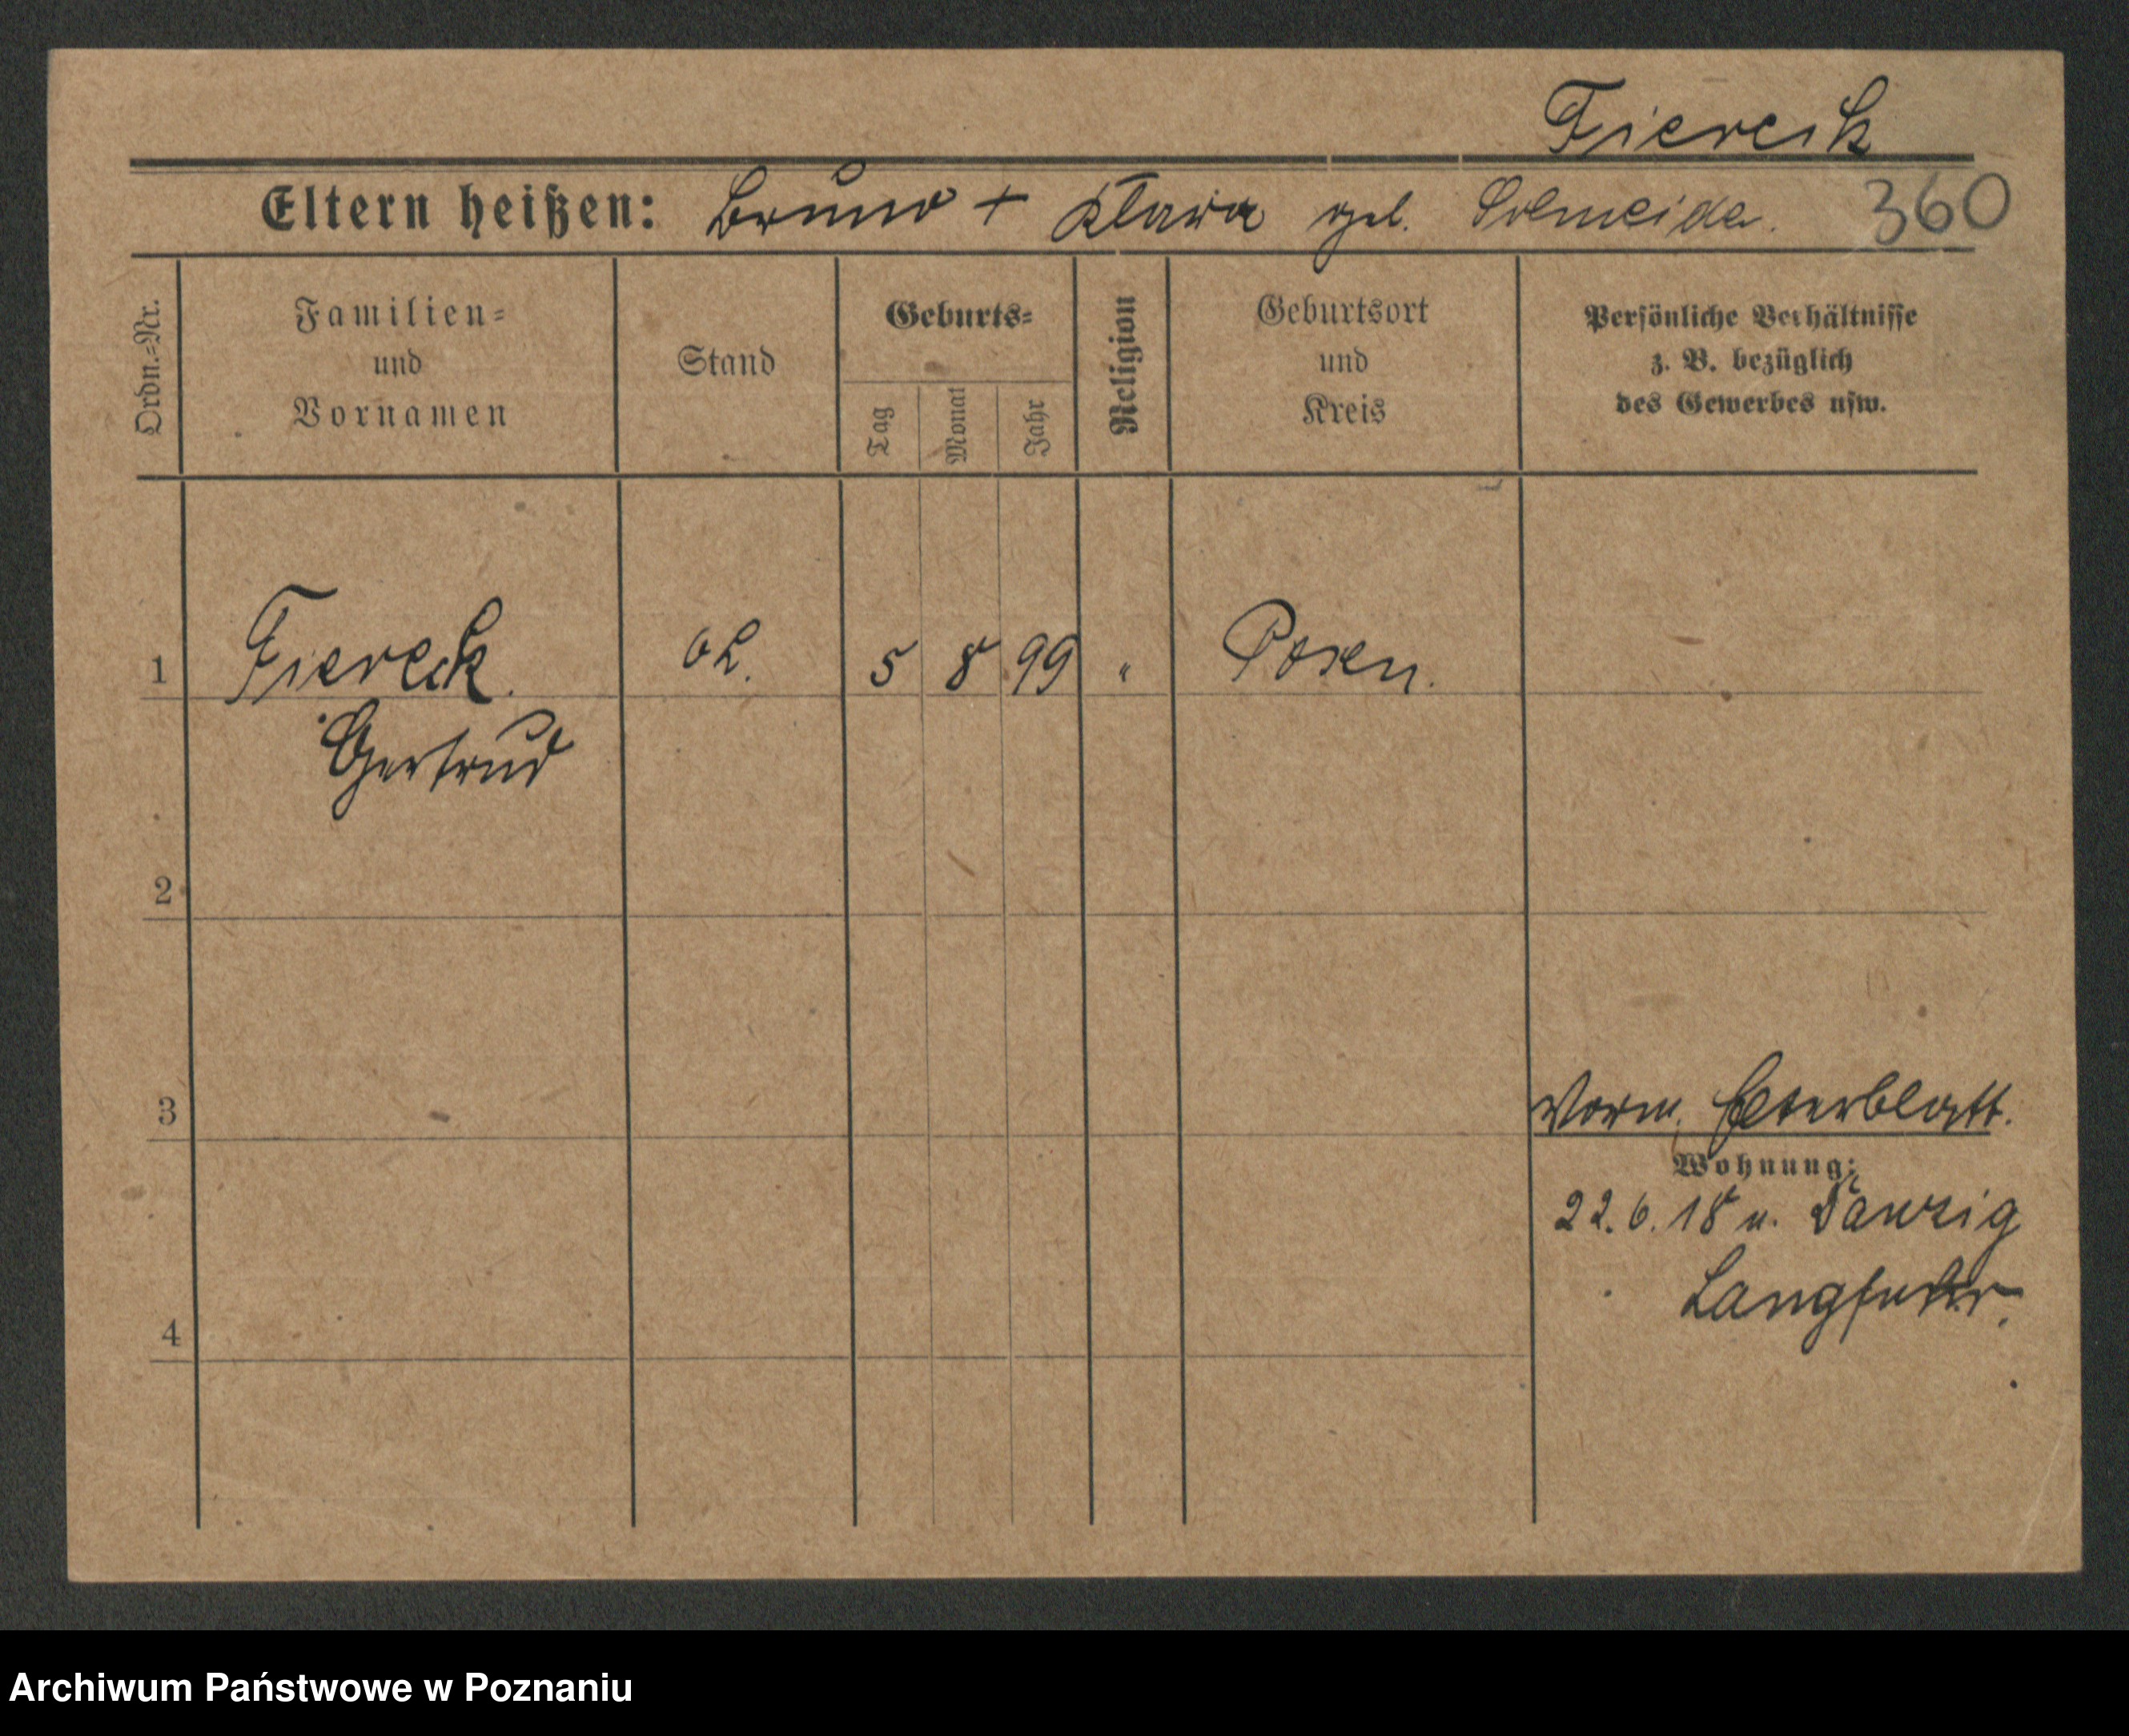 Fiereck
Eltern heißen: Bruno + Klara geb. Schneider. 360
Ordn.=Nr.
Familien=
und
Vornamen
Stand
Geburts=
Tag
Monat
Jahr
Religion
Geburtsort
und
Kreis
Persönliche Verhältnisse
z. B. bezüglich
des Gewerbes usw.
1 Fiereck. 5 8 99 " Posen.
Gertrud
2
3
Vorm. Elternblatt.
Wohnung:
22.6.18 n. Danzig
Langfuhr.
4
Archiwum Państwowe w Poznaniu